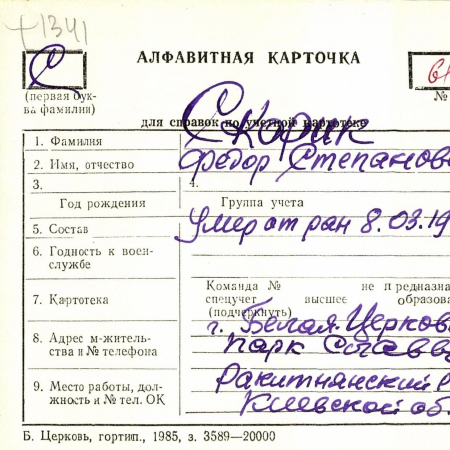 +1341
С
АЛФАВИТНАЯ КАРТОЧКА
61
(первая бук-
ва фамилии)
№
для справок по учетной картотеке
1. Фамилия
Скорик
2. Имя, отчество
Федор Степанов
3.
4.
Год рождения
Группа учета
5. Состав
Умер от ран 8.03.19
6. Годность к воен-
службе
7. Картотека
Команда № не предназна
спецучет высшее образова
(подчеркнуть)
8. Адрес м-житель-
ства и № телефона
г. Белая-Церков
парк Слав
9. Место работы, дол-
жность и № тел. ОК
Ракитнянский р
Киевской об.
Б. Церковь, гортип., 1985, з. 3589—20000